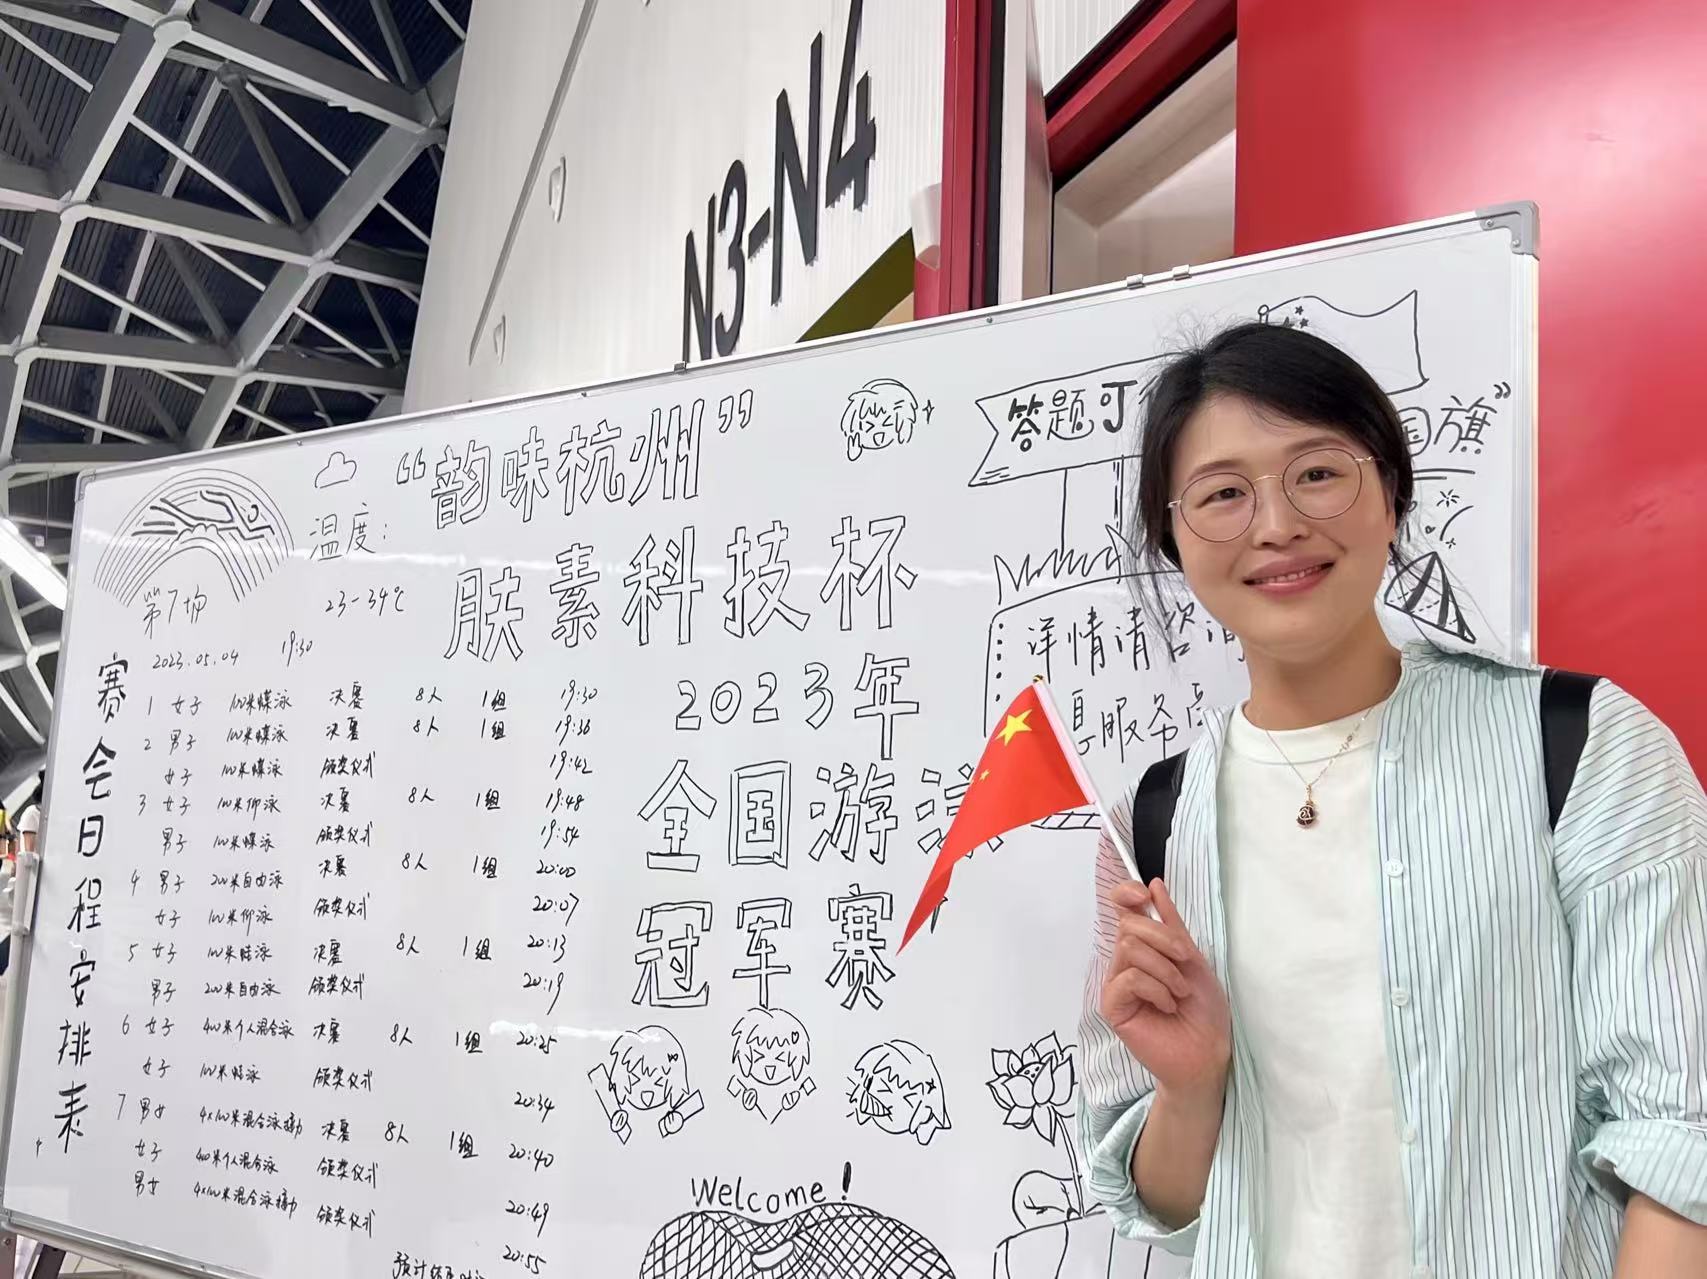 N3-N4
“韵味杭州”
肤素科技杯
2023年
全国游泳
冠军赛
温度：
23-34℃
第7场
2023.05.04 19:30
赛会日程安排表
1 女子 100米蝶泳 决赛 8人 1组 19:30
2 男子 100米蝶泳 决赛 8人 1组 19:36
女子 100米蝶泳 颁奖仪式 19:42
3 女子 100米仰泳 决赛 8人 1组 19:48
男子 100米蝶泳 颁奖仪式 19:54
4 男子 200米自由泳 决赛 8人 1组 20:00
女子 100米仰泳 颁奖仪式 20:07
5 女子 100米蛙泳 决赛 8人 1组 20:13
男子 200米自由泳 颁奖仪式 20:19
6 女子 400米个人混合泳 决赛 8人 1组 20:25
女子 100米蛙泳 颁奖仪式 20:34
7 男女 4x100米混合泳接力 决赛 8人 1组 20:40
女子 400米个人混合泳 颁奖仪式 20:49
男女 4x100米混合泳接力 颁奖仪式 20:55
预计结束时间
答题可
国旗”
详情请咨询
服务
Welcome!